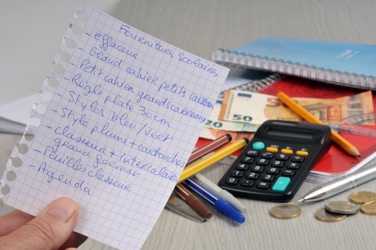 Fournitures scolaires
- effaceur
- Grand cahier petits carreaux
- Petit cahier grands carreaux
- Règle plate 30cm
- Stylos bleu/vert
- Stylo plume + cartouches
- classeur + intercalaire
grand format
- Feuilles classeur
- Agenda